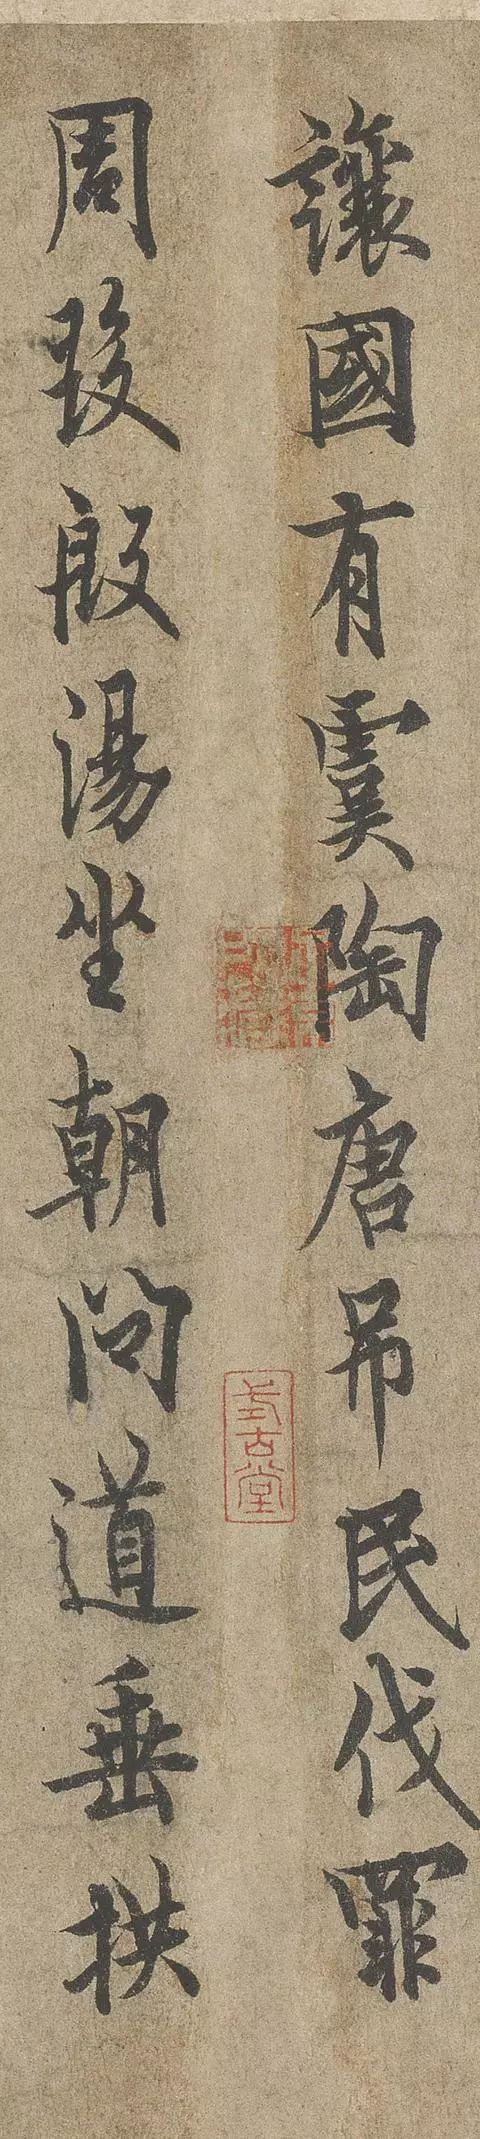 讓國有虞陶唐吊民伐罪
周發殷湯坐朝問道垂拱